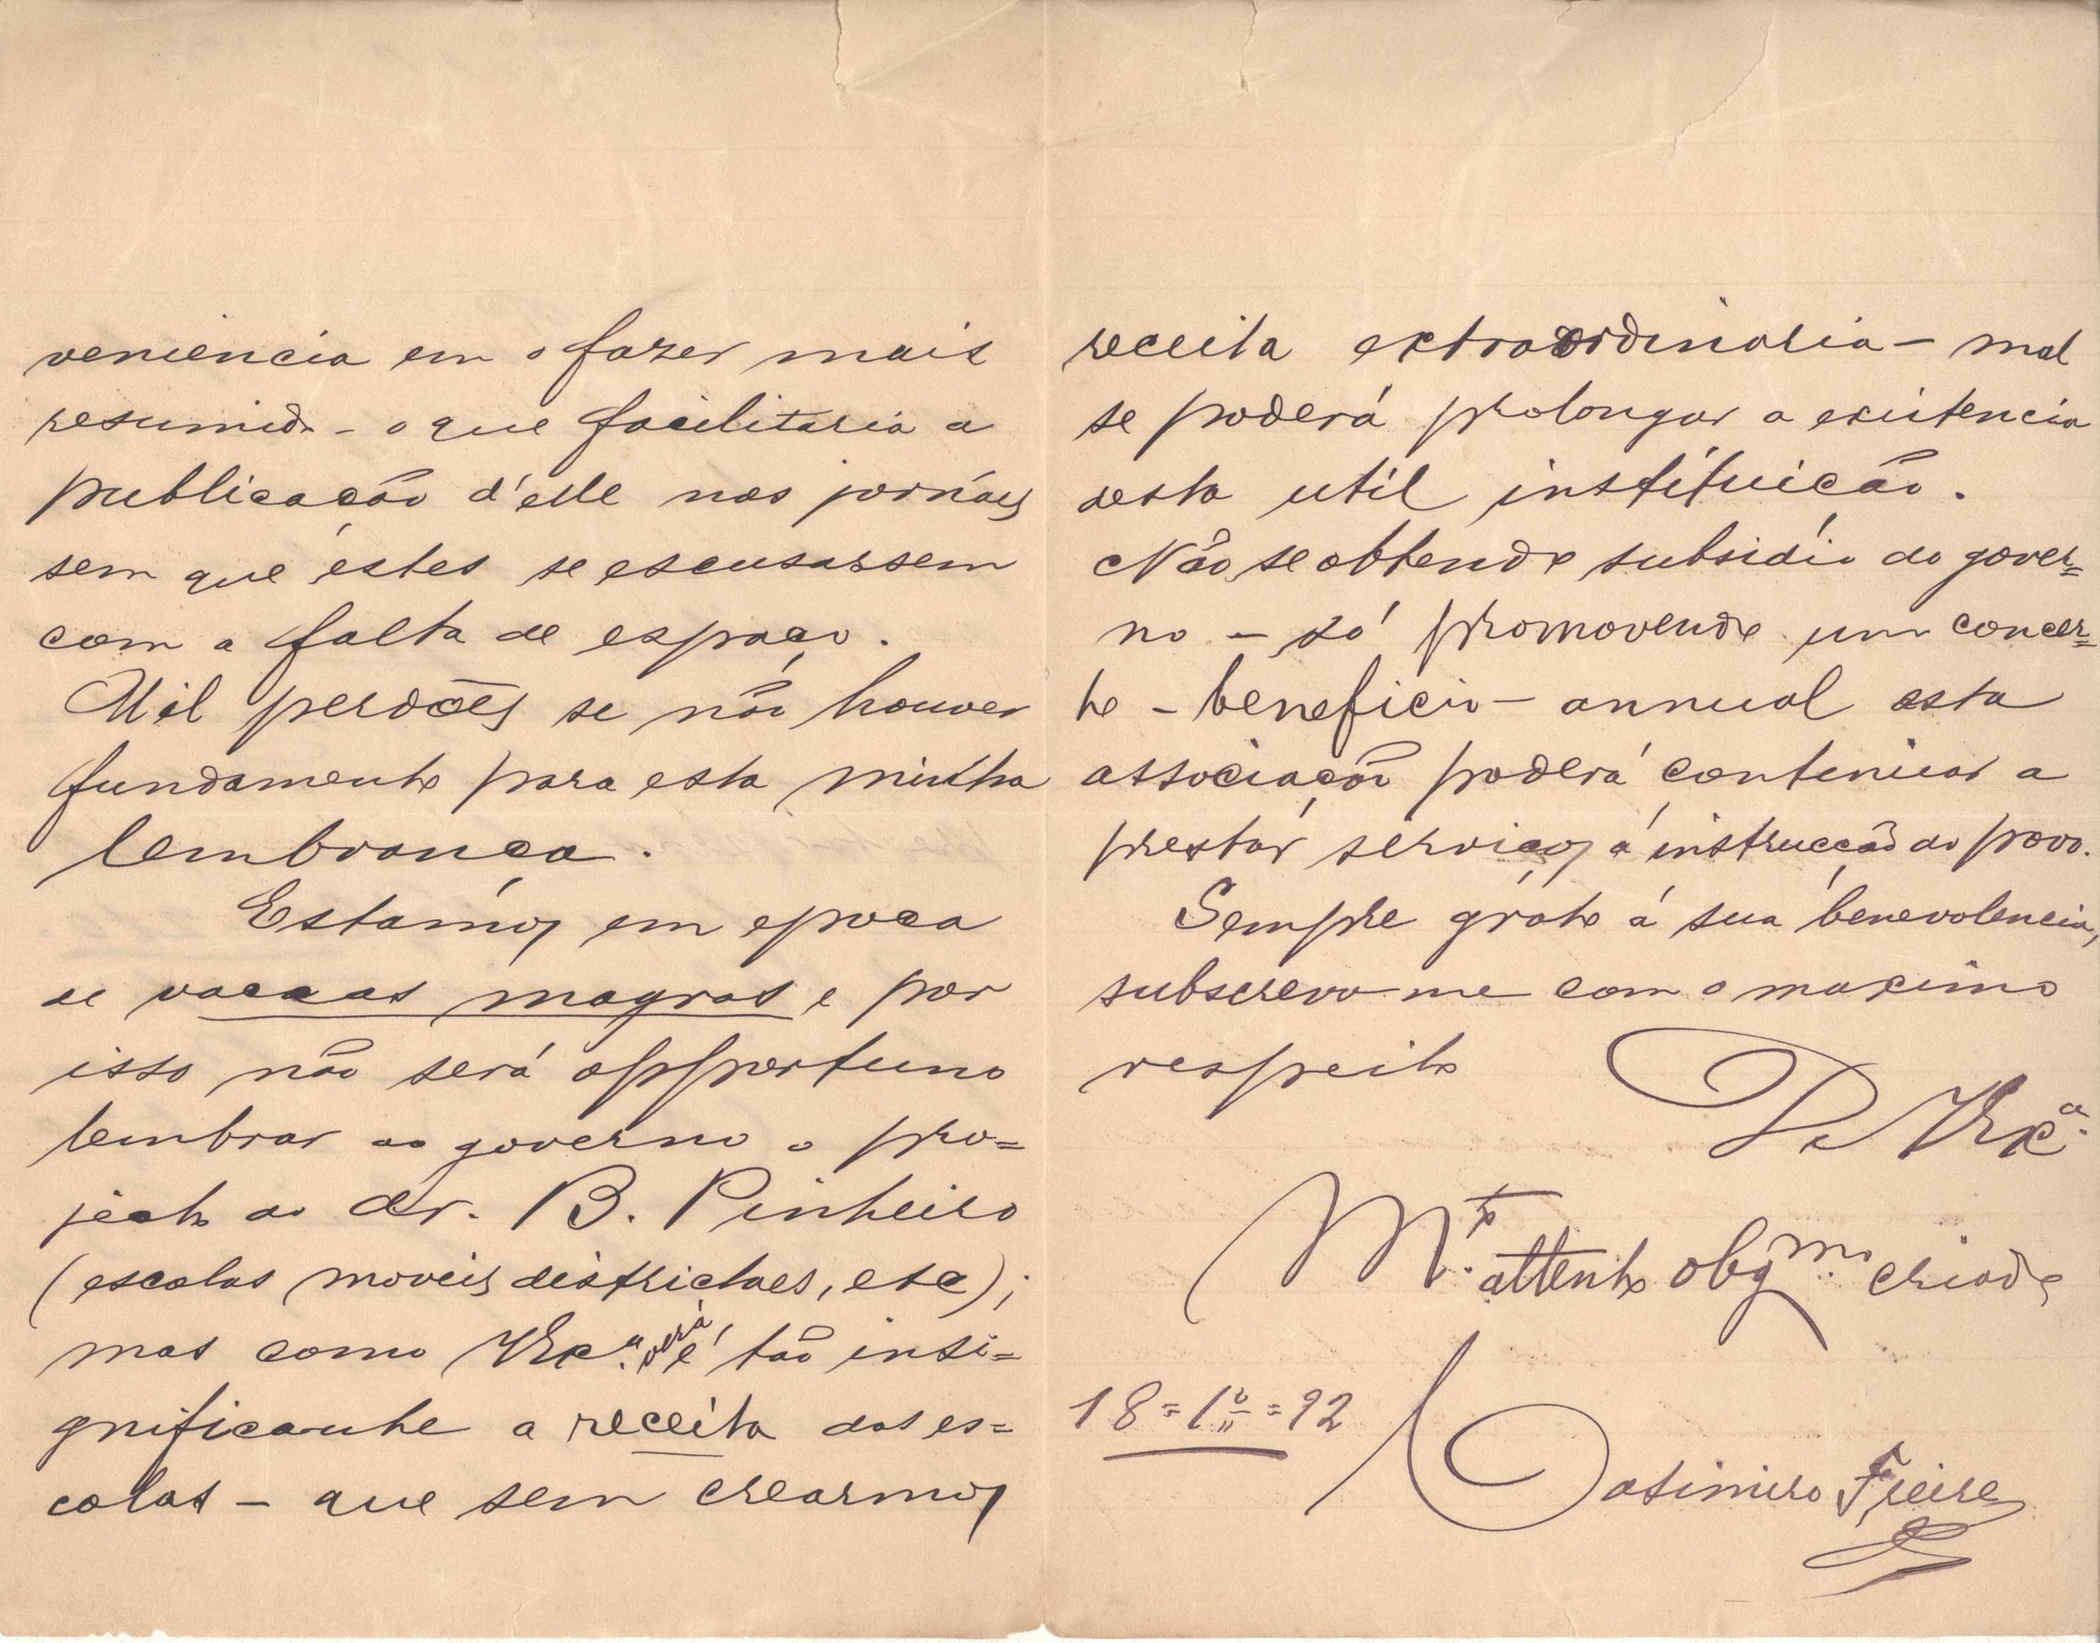 veniencia em o fazer mais
resumido - o que facilitaria a
publicação d'elle nos jornáes
sem que estes se escusassem
com a falta de espaço.
Mil perdões se não houver
fundamento para esta minha
lembrança.
Estamos em epoca
de vaccas magras e por
isso não será opportuno
lembrar ao governo o pro=
jecto do dr. B. Pinheiro
(escolas moveis districtaes, etc);
mas como VExª. verá é tão insi=
gnificante a receita das es=
colas - que sem crearmos
receita extraordinaria - mal
se poderá prolongar a existencia
desta util instituição.
Não se obtendo subsidio do gover=
no - só promovendo um concer=
to - beneficio - annual esta
associação poderá continuar a
prestar serviços á instrucção do povo.
Sempre grato á sua benevolencia,
subscrevo-me com o maximo
respeito
De VExª.
M.to attento obgmo. criado
18=1º=92
Casimiro Freire